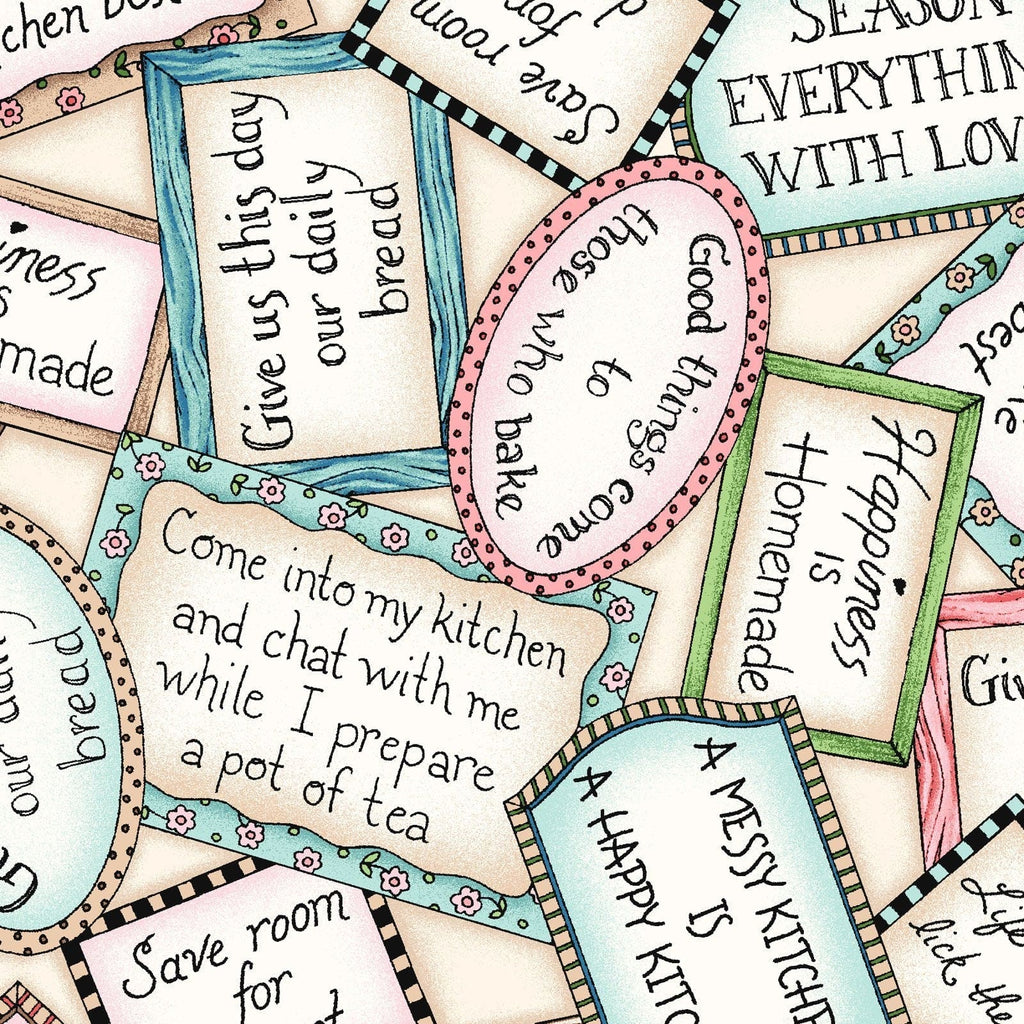 Save room
for
SEASON
EVERYTHIN
WITH LOV
Give us this day
our daily
bread
Good things come
to
those who bake
iness
s
made
best
Happiness
is
Homemade
Come into my kitchen
and chat with me
while I prepare
a pot of tea
our daily
bread
Giv
A MESSY KITCHE
IS
A HAPPY KITC
Save room
for
Life
lick the